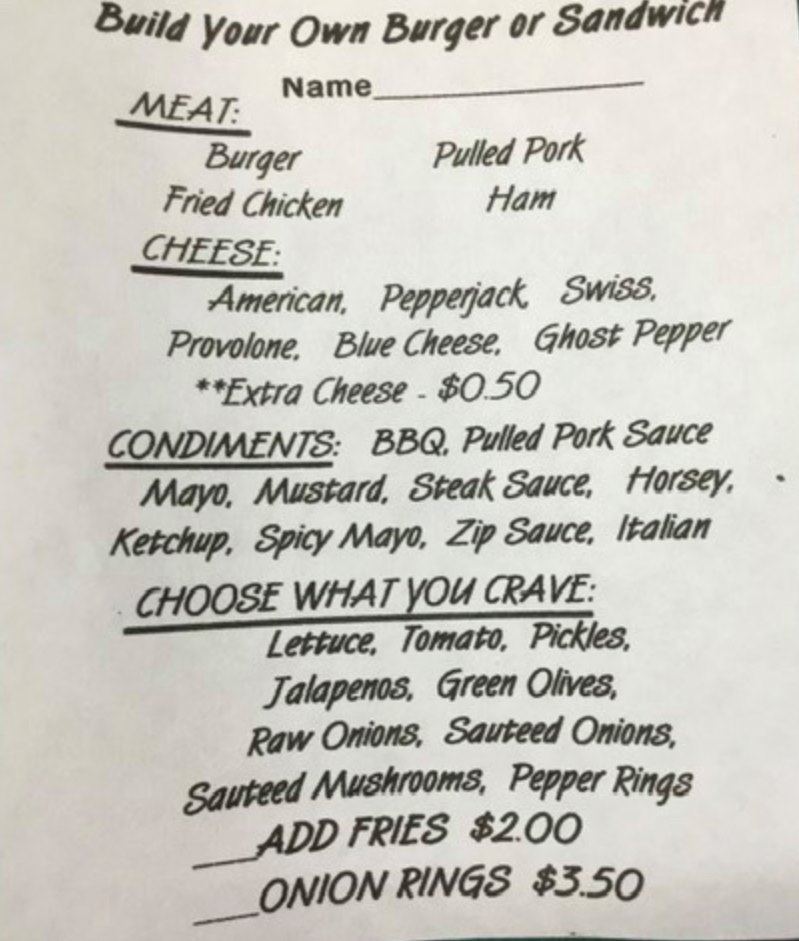 Build Your Own Burger or Sandwich
Name____________________
MEAT:
Burger Pulled Pork
Fried Chicken Ham
CHEESE:
American, Pepperjack, Swiss,
Provolone, Blue Cheese, Ghost Pepper
**Extra Cheese - $0.50
CONDIMENTS: BBQ, Pulled Pork Sauce
Mayo, Mustard, Steak Sauce, Horsey,
Ketchup, Spicy Mayo, Zip Sauce, Italian
CHOOSE WHAT YOU CRAVE:
Lettuce, Tomato, Pickles,
Jalapenos, Green Olives,
Raw Onions, Sauteed Onions,
Sauteed Mushrooms, Pepper Rings
____ADD FRIES $2.00
____ONION RINGS $3.50